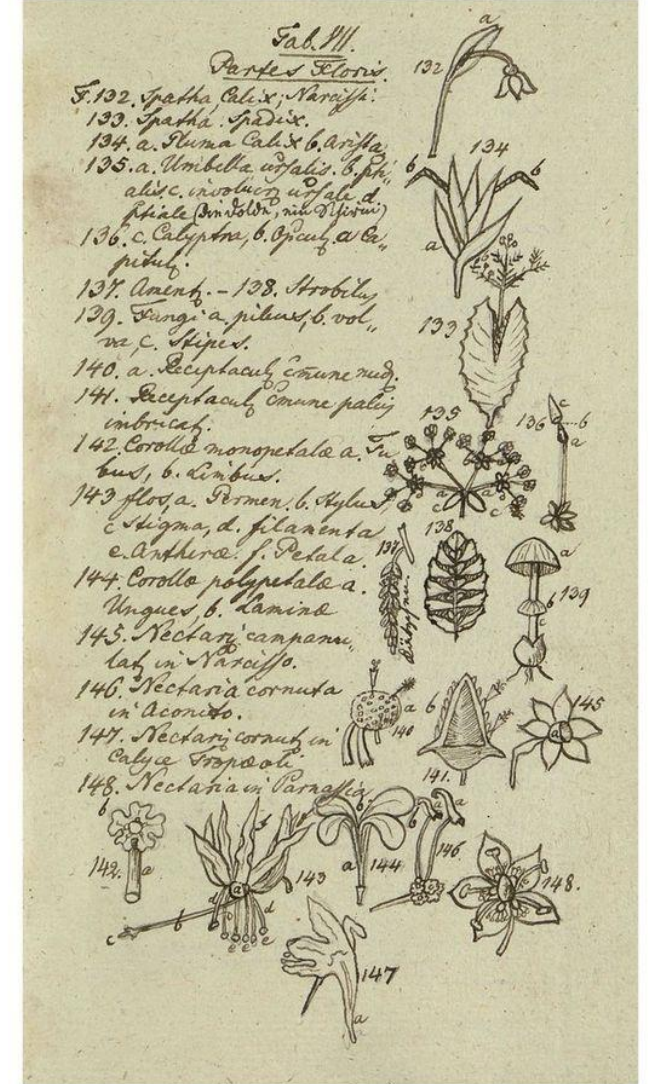 Tab. VII.
Partes Floris.
F. 132. Spatha, Calix; Narcissi.
133. Spatha. Spadix.
134. a. Gluma Calix b. Arista
135. a. Umbella
alis c. d.
136. c. Calyptra, b. a Ca„
pitul.
137. Ament. – 138. Strobilus
139. Fungi a. pileus, b. vol„
va, c. Stipes.
140. a. Receptacul cmune nud.
141. Receptacul cmune paleis
imbricat.
142. Corollæ monopetalæ a. Tu
bus, b. Limbus.
143 flos, a. Germen. b. Stylus,
c Stigma, d. filamenta
e. Antheræ. f. Petala.
144. Corollæ polypetalæ a.
Ungues, b. Laminæ
145. Nectari campanu„
lat in Narcisso.
146. Nectaria cornuta
in Aconito.
147. Nectari cornut in
Calyce Tropæoli
148. Nectaria in Parnassia.
a
132
134
b b
a
133
135
136 c
b
a
a a
c c
137
138
a
139
b
c
a
140
b
141.
145
a
b
142. a
143
a
b
c
d d
e e e e
f
b
a 144
b a
146
148.
147
a